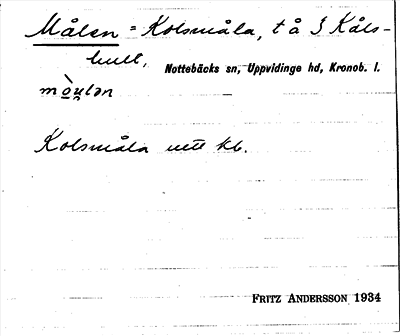 Målen = Kolsmåla, t å 3 Kåls-
hult,
Nottebäcks sn, Uppvidinge hd, Kronob. l.
Kolsmåla utt kb.
FRITZ ANDERSSON 1934